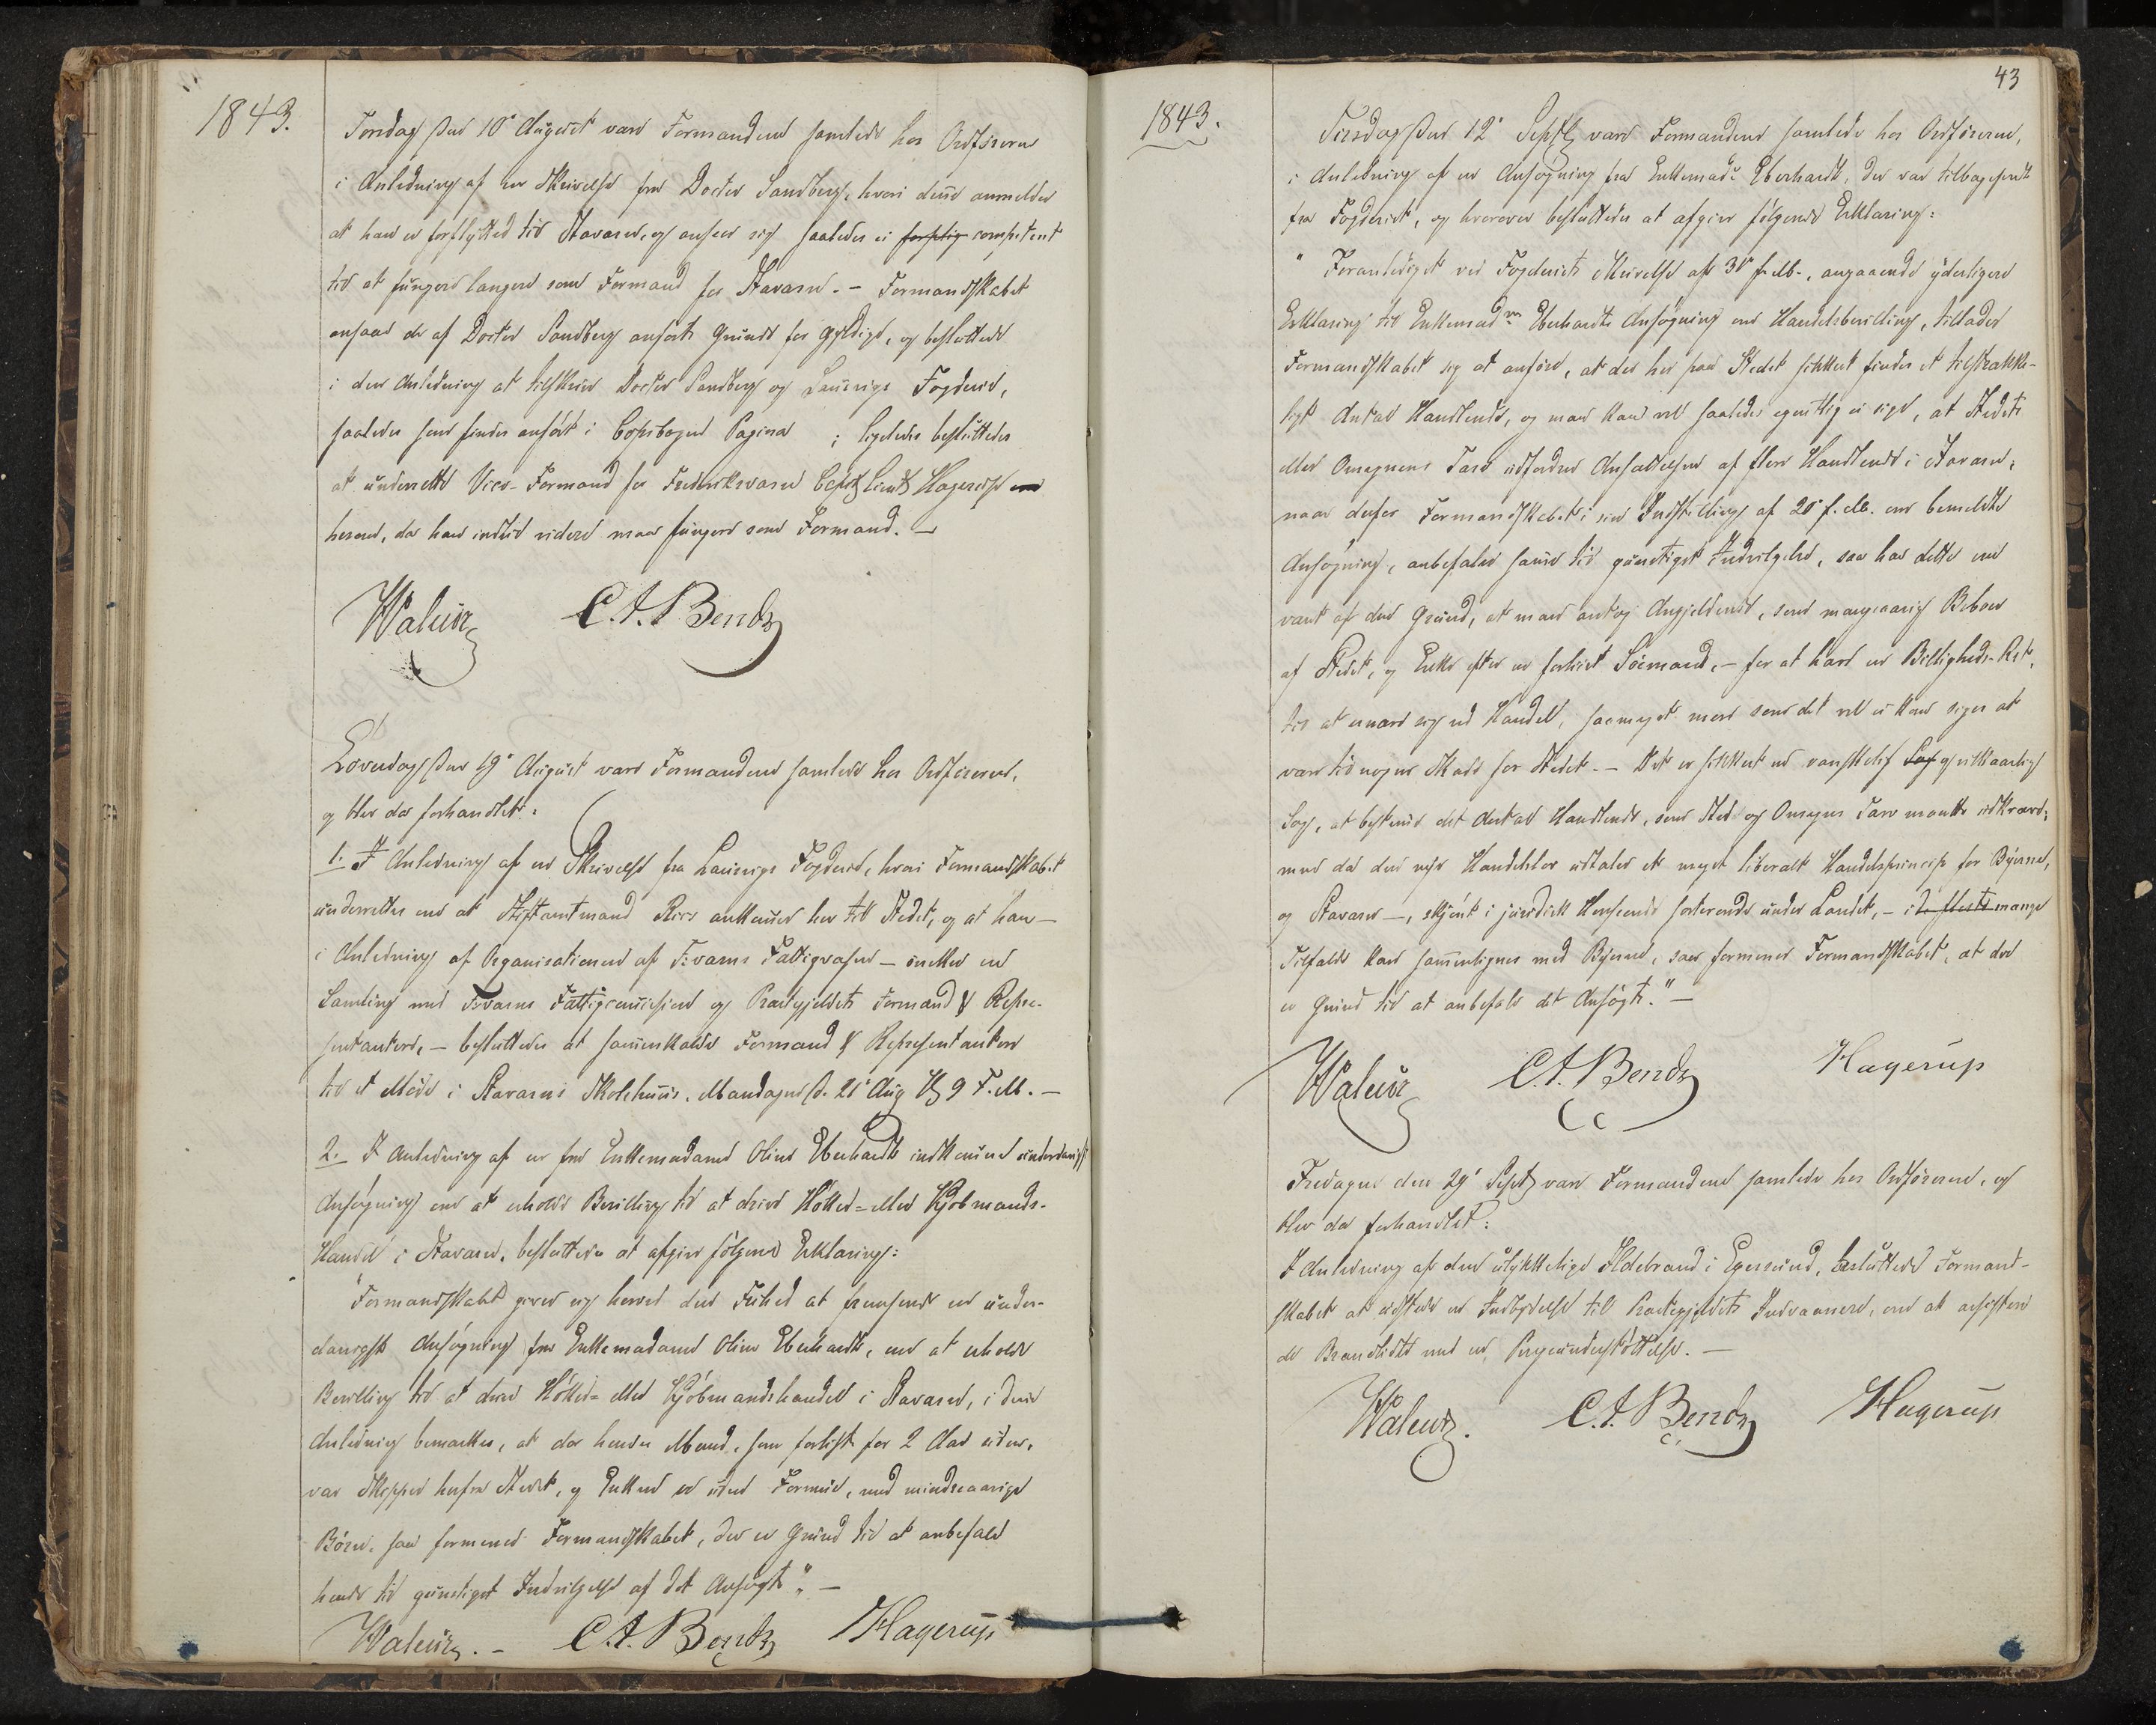 1843.
Torsdag den 10' August vare Formændene samlede hos Ordføreren
i Anledning af en Skrivelse fra Doctor Sandberg, hvori denne anmelder
at han er forflyttet til Staværn, og anseer sig saaledes ei competent
til at fungere længere som Formand for Staværn. - Formandskabet
ansaae de af Doctor Sandberg anførte Grunde for gyldige, og besluttede
i den Anledning at tilskrive Doctor Sandberg og Laurvigs Fogderie,
saaledes som findes anført i Copiebogen Pagina ; ligeledes besluttedes
at underrette Vice-Formand for Fredriksværn Hagerup om
herom, da han indtil videre maa fungere som Formand. -
Waleur C.A. Bentz
Løverdag den 19' August vare Formændene samlede hos Ordføreren,
og blev da forhandlet:
1. I Anledning af en Skrivelse fra Laurvigs Fogderie, hvori Formandskabet
underrettes om at Stiftamtmand Ries ankommer her til Stedet, og at han -
i Anledning af Organisationen af F:værns Fattigvæsen - ønsker en
Samling med F:værns Fattigcommission og Præstegjeldets Formænd & Repræ-
sentantere, - besluttedes at sammenkalde Formænd & Repræsentantere
til et Møde i Staværns Skolehuus, Mandagen d. 21' Aug Kl 9 F.M. -
2. I Anledning af en fra Enkemadame Oline Eberhardt indkommen underdanigst
Ansøgning om at erholde Bevilling til at drive Høker- eller Kjøbmands-
Handel i Staværn, besluttedes at afgive følgende Erklæring:
"Formandskabet giver sig herved den Frihed at fremsende en under-
danigst Ansøgning fra Enkemadame Oline Eberhardt, om at erholde
Bevilling til at drive Høker- eller Kjøbmandshandel i Staværn, i denne
Anledning bemærkes, at da hendes Mand, som forliste for 2 Aar siden,
var Skipper herfra Stedet, og Enken er uden Formue, med mindreaarige
Børn, saa formener Formandskabet, der er Grund til at anbefale
hende til gunstigst Indvilgelse af det Ansøgte." -
Waleur. - C.A. Bentz Hagerup
43
1843.
Tirsdag den 12' Septbr vare Formændene samlede hos Ordføreren,
i Anledning af en Ansøgning fra Enkemade Eberhardt, der var tilbagesendt
fra Fogderiet, og hvorover besluttedes at afgive følgende Erklæring:
" Foranlediget ved Fogderiets Skrivelse af 30' f. M., angaaende yderligere
Erklæring til Enkemadm Eberhardts Ansøgning om Handelsbevilling, tillader
Formandskabet sig at anføre, at der her paa Stedet sikkert findes et tilstrække-
ligt Antal Handlende, og man kan vel saaledes egentlig ei sige, at Stedets
eller Omegnens Tarv udfordrer Ansættelsen af flere Handlende i Staværn;
naar derfor Formandskabet i sin Indstilling af 20' f. M. om bemeldte
Ansøgning, anbefaler samme til gunstigst Indvilgelse, saa har dette
været af den Grund, at man antog Angjeldende, som mangeaarig Beboer
af Stedet, og Enke efter en forliist Sømand, - for at have en Billigheds-Ret,
til at ernære sig ved Handel, saameget mere som det vel ei kan siges at
være til nogen Skade for Stedet. - Det er sikkert en vanskelig Sag og vilkaarlig
Sag, at bestemme det Antal Handlende, som Sted og Omegns Tarv maatte udkræve;
men da den nye Handelslov udtaler et meget liberalt Handelsprincip for Byerne,
og Staværn -, skjønt i juridisk Henseende sorterende under Landet, - i de fleste mange
Tilfælde kan sammenlignes med Byerne, saa formener Formandskabet, at der
er Grund til at anbefale det Ansøgte." -
Waleur C.A. Bentz Hagerup
Fredagen den 29' Septbr vare Formændene samlede hos Ordføreren, og
blev da forhandlet:
I Anledning af den ulykkelige Ildebrand i Egersund, besluttede Formand-
skabet at udstede en Indbydelse til Præstegjeldets Indvaanere, om at assistere
de Brandlidte med en Pengeunderstøttelse. -
Waleur. C.A. Bentz Hagerup